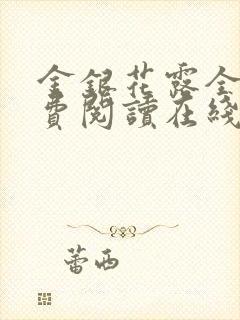 金銀花露全
費閱讀在綫
蕾西